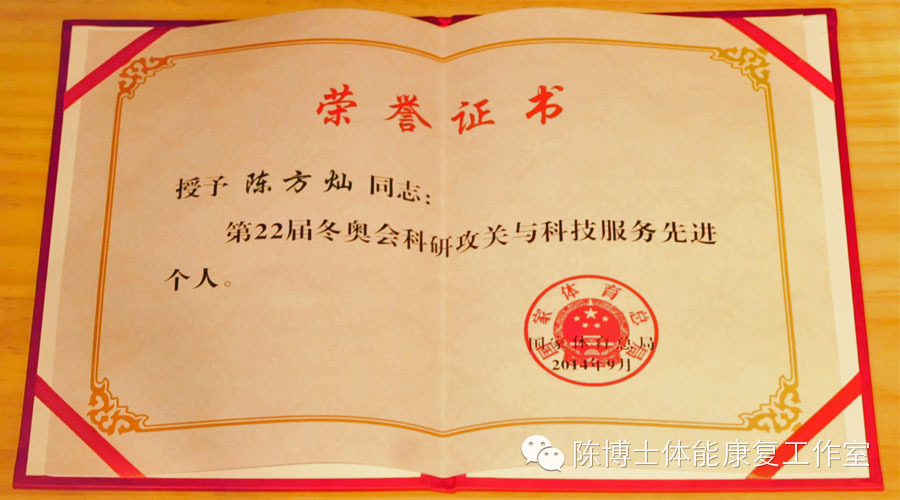 荣誉证书
授予 陈方灿 同志：
第22届冬奥会科研攻关与科技服务先进
个人。
国家体育总局
国家体育总局
2014年9月
陈博士体能康复工作室